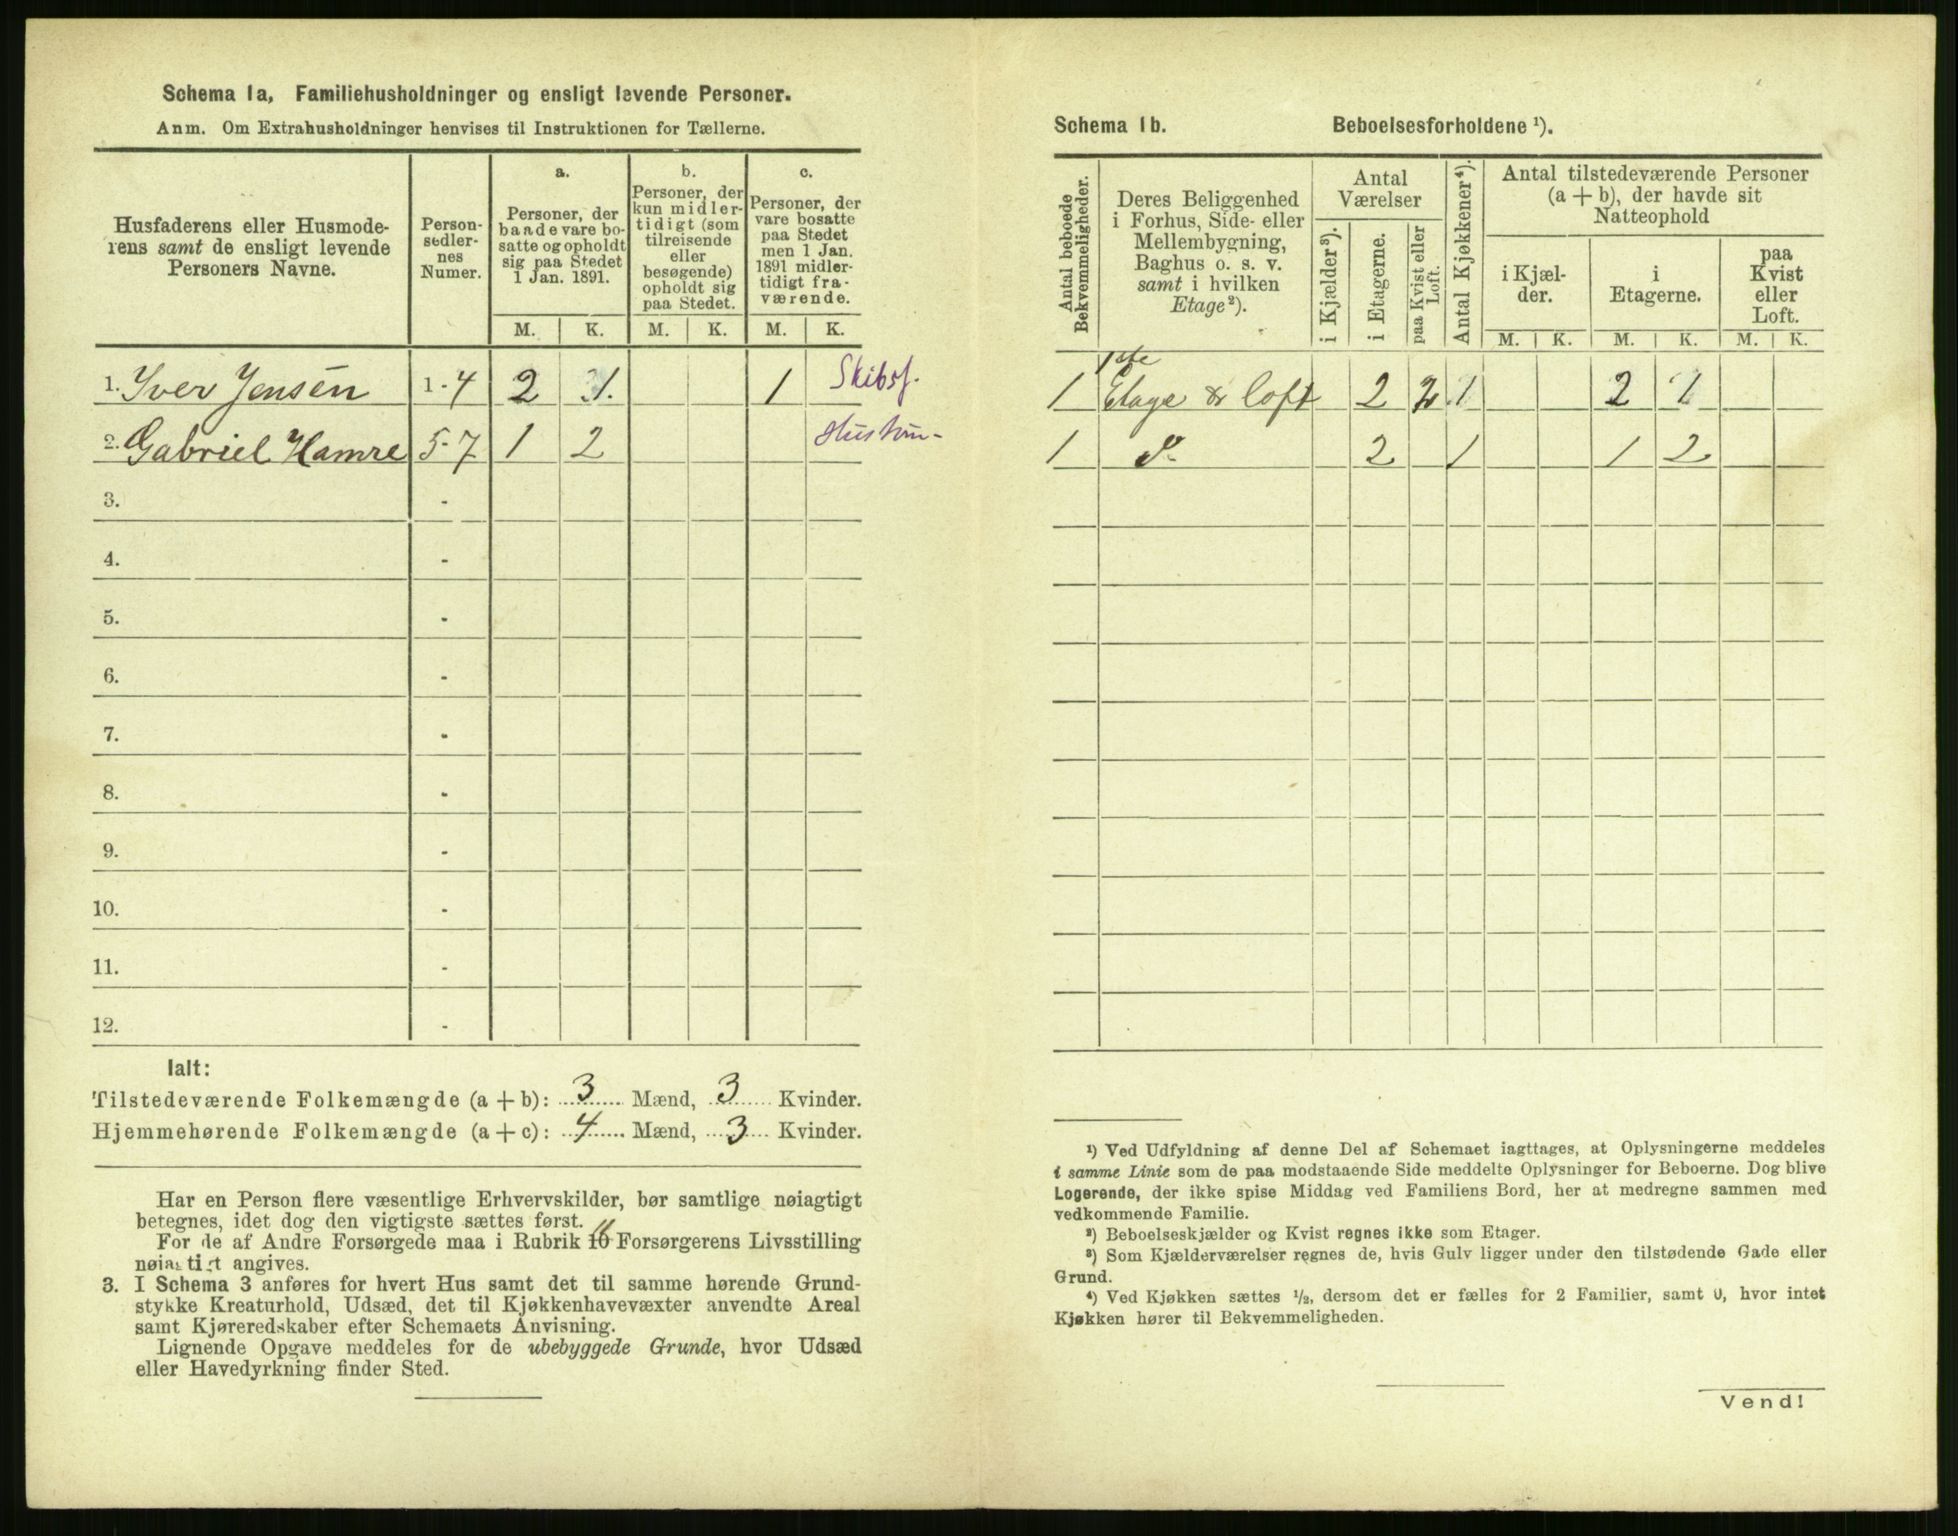 Schema 1a, Familiehusholdninger og ensligt levende Personer.
Anm. Om Extrahusholdninger henvises til Instruktionen for Tællerne.
Husfaderens eller Husmode-
rens samt de ensligt levende
Personers Navne.
Person-
sedler-
nes
Numer.
a.
Personer, der
baade vare bo-
satte og opholdt
sig paa Stedet
1 Jan. 1891.
b.
Personer, der
kun midler-
tidigt (som
tilreisende
eller
besøgende)
opholdt sig
paa Stedet.
c.
Personer, der
vare bosatte
paa Stedet
men 1 Jan.
1891 midler-
tidigt fra-
værende.
M. K. M. K. M. K.
1. Iver Jensen 1-4 2 1. 1 Skibsf.
2. Gabriel Hamre 5-7 1 2
3. -
4. -
5. -
6. -
7. -
8. -
9. -
10. -
11. -
12. -
Ialt:
Tilstedeværende Folkemængde (a + b): 3 Mænd, 3 Kvinder.
Hjemmehørende Folkemængde (a + c): 4 Mænd, 3 Kvinder.
Har en Person flere væsentlige Erhvervskilder, bør samtlige nøiagtigt
betegnes, idet dog den vigtigste sættes først.
For de af Andre Forsørgede maa i Rubrik 10 Forsørgerens Livsstilling
nøiagtigt angives.
3. I Schema 3 anføres for hvert Hus samt det til samme hørende Grund-
stykke Kreaturhold, Udsæd, det til Kjøkkenhavevæxter anvendte Areal
samt Kjøreredskaber efter Schemaets Anvisning.
Lignende Opgave meddeles for de ubebyggede Grunde, hvor Udsæd
eller Havedyrkning finder Sted.
Schema 1b. Beboelsesforholdene ¹).
Antal beboede
Bekvemmeligheder.
Deres Beliggenhed
i Forhus, Side- eller
Mellembygning,
Baghus o. s. v.
samt i hvilken
Etage²).
Antal
Værelser
i Kjælder³).
i Etagerne.
paa Kvist eller
Loft.
Antal Kjøkkener⁴).
Antal tilstedeværende Personer
(a + b), der havde sit
Natteophold
i Kjæl-
der.
i
Etagerne.
paa
Kvist
eller
Loft.
M. K. M. K. M. K.
1 1ste Etage & Loft 2 2 1 2 1
1 do 2 1 1 2
¹) Ved Udfyldning af denne Del af Schemaet iagttages, at Oplysningerne meddeles
i samme Linie som de paa modstaaende Side meddelte Oplysninger for Beboerne. Dog blive
Logerende, der ikke spise Middag ved Familiens Bord, her at medregne sammen med
vedkommende Familie.
²) Beboelseskjælder og Kvist regnes ikke som Etager.
³) Som Kjælderværelser regnes de, hvis Gulv ligger under den tilstødende Gade eller
Grund.
⁴) Ved Kjøkken sættes ½, dersom det er fælles for 2 Familier, samt 0, hvor intet
Kjøkken hører til Bekvemmeligheden.
Vend!